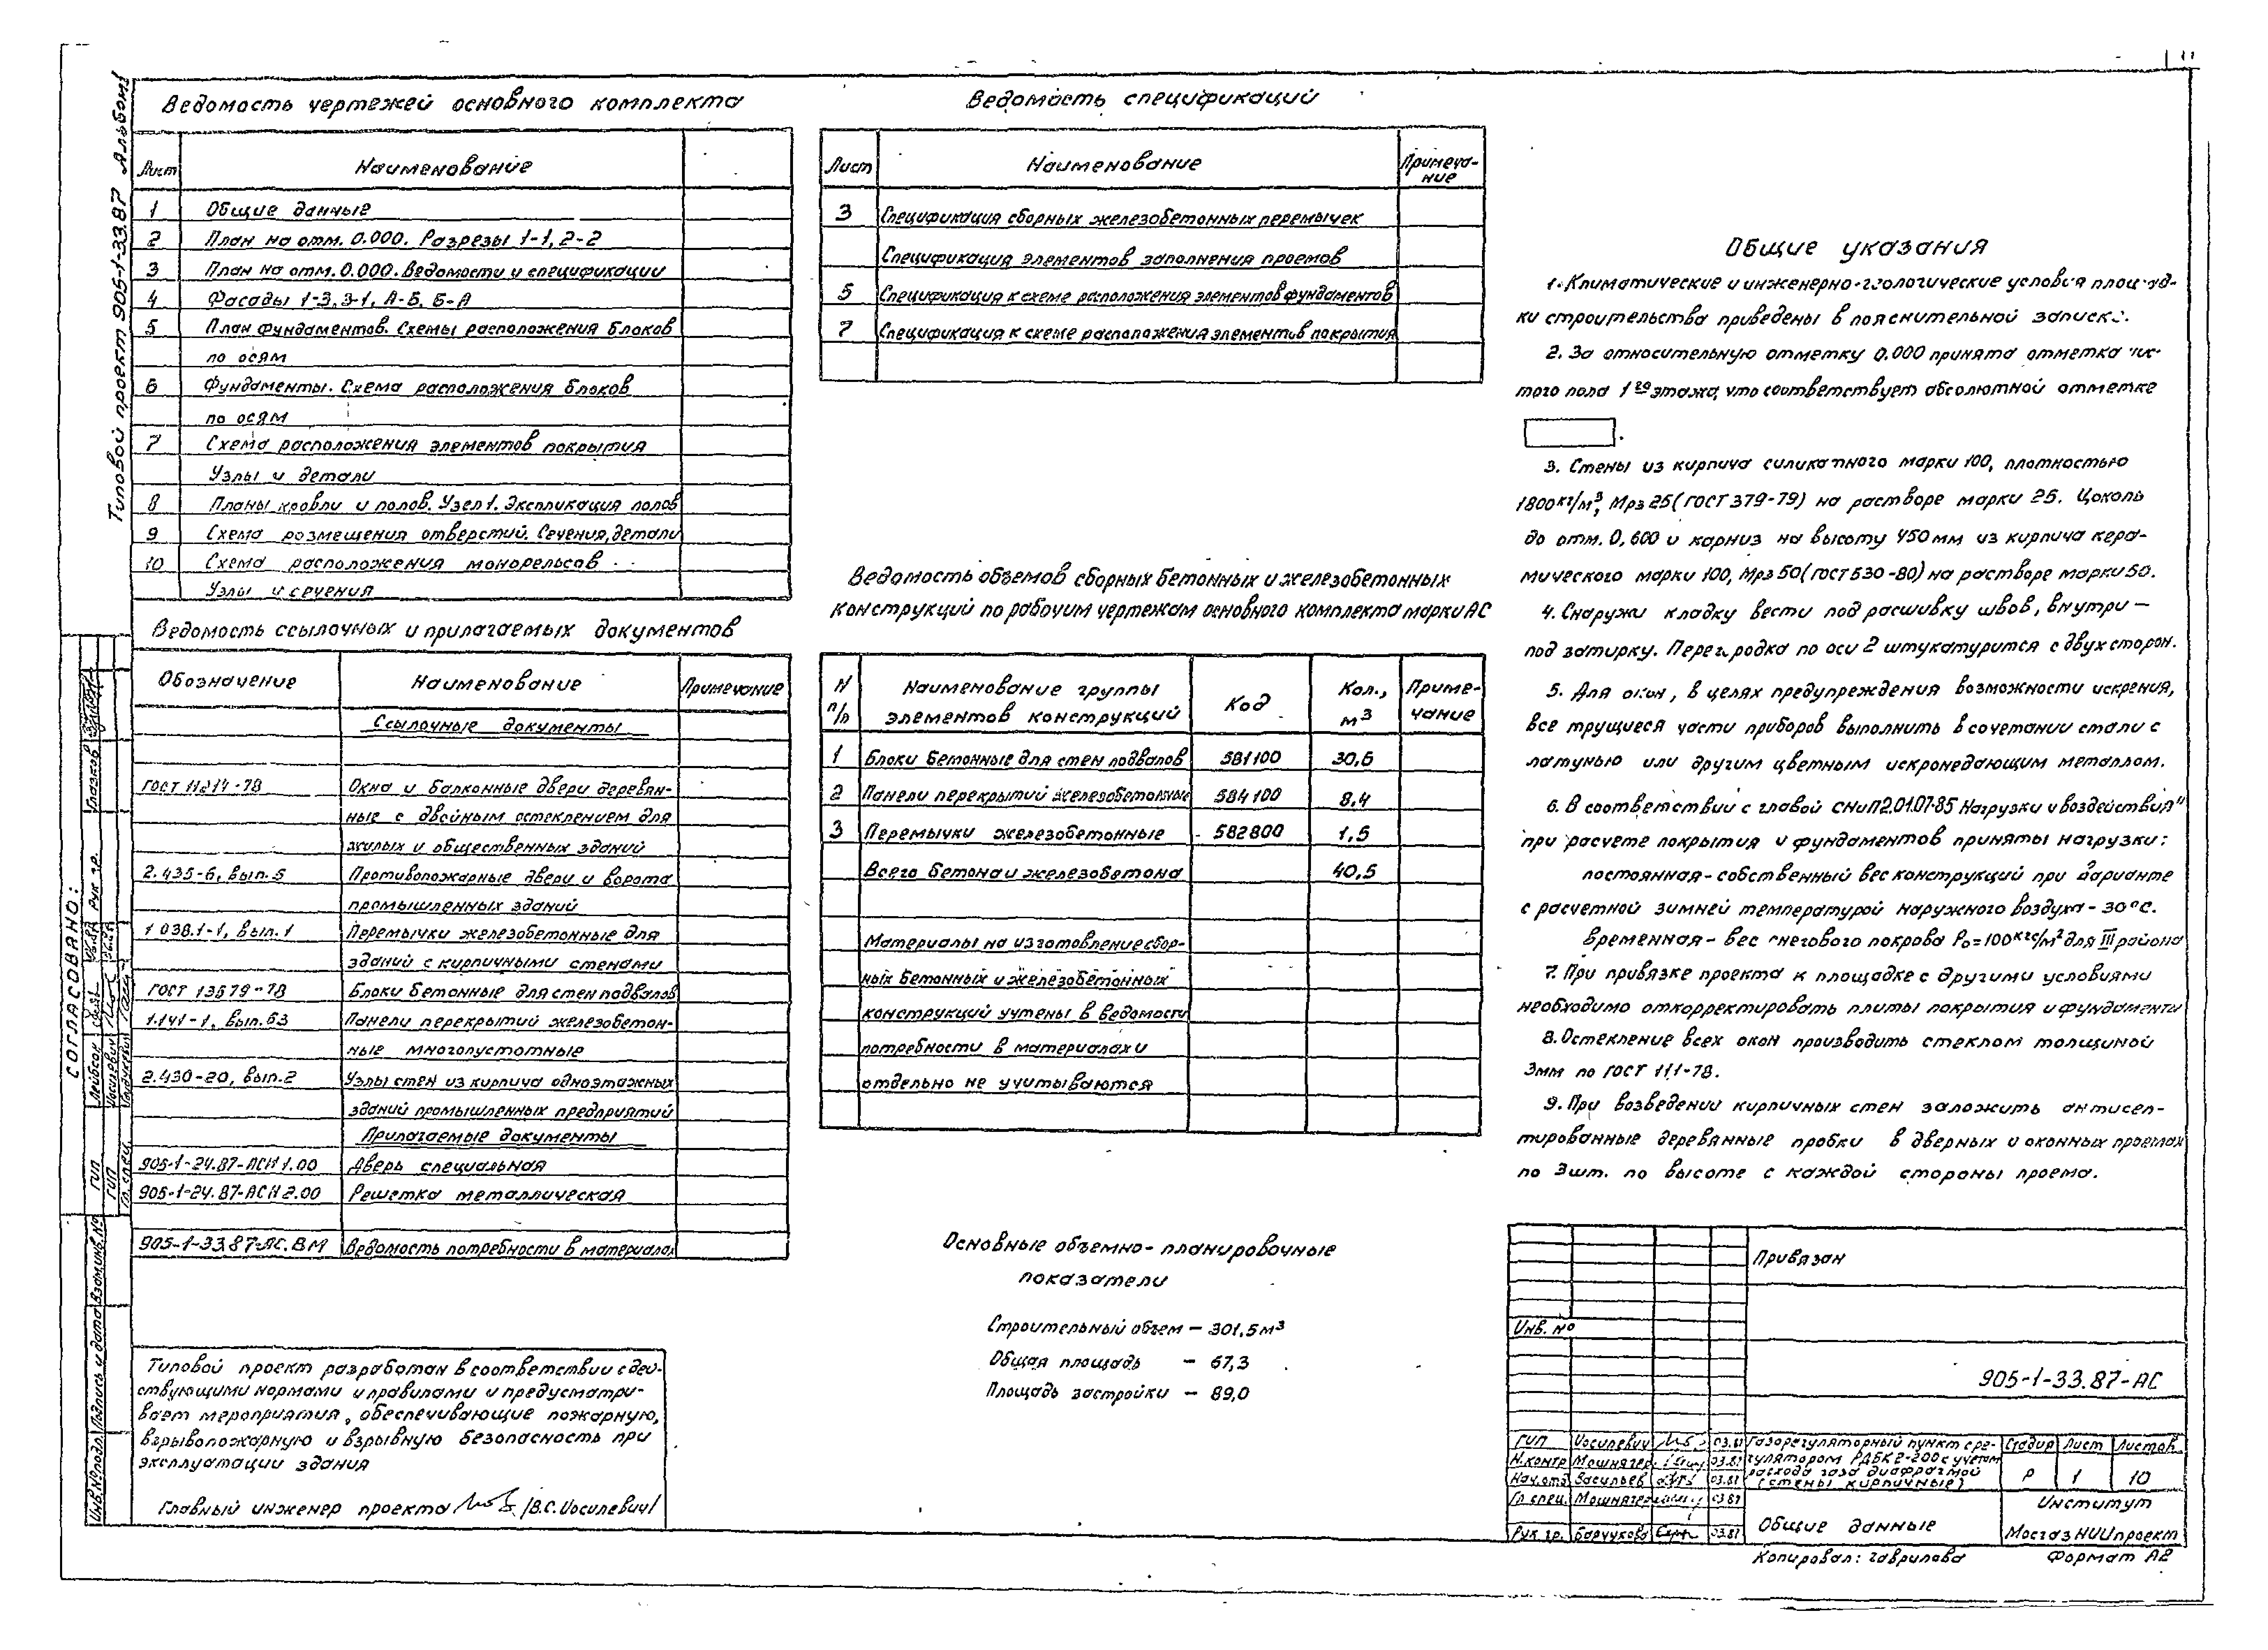 11
Типовой проект 905-1-33.87 Альбом
Ведомость чертежей основного комплекта
Лист Наименование
1 Общие данные
2 План на отм. 0.000. Разрезы 1-1, 2-2
3 План на отм. 0.000. Ведомости и спецификации
4 Фасады 1-3, 3-1, А-Б, Б-А
5 План фундаментов. Схемы расположения блоков
по осям
6 Фундаменты. Схема расположения блоков
по осям
7 Схема расположения элементов покрытия
Узлы и детали
8 Планы кровли и полов. Узел 1. Экспликация полов
9 Схема размещения отверстий. Сечения, детали
10 Схема расположения монорельсов
Узлы и сечения
Ведомость ссылочных и прилагаемых документов
Обозначение Наименование Примечание
Ссылочные документы
ГОСТ 11214-78 Окна и балконные двери деревян-
ные с двойным остеклением для
жилых и общественных зданий
2.435-6, вып.5 Противопожарные двери и ворота
промышленных зданий
1 038.1-1, вып.1 Перемычки железобетонные для
зданий с кирпичными стенами
ГОСТ 13579-78 Блоки бетонные для стен подвалов
1.141-1, вып.63 Панели перекрытий железобетон-
ные многопустотные
2.430-20, вып.2 Узлы стен из кирпича одноэтажных
зданий промышленных предприятий
Прилагаемые документы
905-1-24.87-АСИ 1.00 Дверь специальная
905-1-24.87-АСИ 2.00 Решетка металлическая
905-1-33.87-АС.ВМ Ведомость потребности в материалах
Типовой проект разработан в соответствии с дей-
ствующими нормами и правилами и предусматри-
вает мероприятия, обеспечивающие пожарную,
взрывопожарную и взрывную безопасность при
эксплуатации здания
Главный инженер проекта /В.С. Иосилевич/
Ведомость спецификаций
Лист Наименование Примеча-
ние
3 Спецификация сборных железобетонных перемычек
Спецификация элементов заполнения проемов
5 Спецификация к схеме расположения элементов фундаментов
7 Спецификация к схеме расположения элементов покрытия
Ведомость объемов сборных бетонных и железобетонных
конструкций по рабочим чертежам основного комплекта марки АС
N п/п Наименование группы элементов конструкций Код Кол., м³ Приме-
чание
1 Блоки бетонные для стен подвалов 581100 30,6
2 Панели перекрытий железобетонные 584100 8,4
3 Перемычки железобетонные 582800 1,5
Всего бетона и железобетона 40,5
Материалы на изготовление сбор-
ных бетонных и железобетонных
конструкций учтены в ведомости
потребности в материалах и
отдельно не учитываются
Основные объемно-планировочные
показатели
Строительный объем - 301,5 м³
Общая площадь - 67,3
Площадь застройки - 89,0
Общие указания
1. Климатические и инженерно-геологические условия площад-
ки строительства приведены в пояснительной записке.
2. За относительную отметку 0.000 принята отметка чис-
того пола 1го этажа, что соответствует абсолютной отметке
.
3. Стены из кирпича силикатного марки 100, плотностью
1800 кг/м³, Мрз 25 (ГОСТ 379-79) на растворе марки 25. Цоколь
до отм. 0,600 и карниз на высоту 450 мм из кирпича кера-
мического марки 100, Мрз 50 (ГОСТ 530-80) на растворе марки 50.
4. Снаружи кладку вести под расшивку швов, внутри -
под затирку. Перегородка по оси 2 штукатурится с двух сторон.
5. Для окон, в целях предупреждения возможности искрения,
все трущиеся части приборов выполнить в сочетании стали с
латунью или другим цветным искронедающим металлом.
6. В соответствии с главой СНиП 2.01.07-85 Нагрузки и воздействия"
при расчете покрытия и фундаментов приняты нагрузки:
постоянная - собственный вес конструкций при варианте
с расчетной зимней температурой наружного воздуха - 30°С.
временная - вес снегового покрова Р₀ = 100 кгс/м² для III района
7. При привязке проекта к площадке с другими условиями
необходимо откорректировать плиты покрытия и фундаменты
8. Остекление всех окон производить стеклом толщиной
3мм по ГОСТ 111-78.
9. При возведении кирпичных стен заложить антисеп-
тированные деревянные пробки в дверных и оконных проемах
по 3шт. по высоте с каждой стороны проема.
Привязан
Инв. №
905-1-33.87-АС
ГИП Иосилевич 03.87
Н.контр Мошнягер 03.87
Нач.отд Васильев 03.87
Гл. спец. Мошнягер 03.87
Рук. гр. Барчукова 03.87
Газорегуляторный пункт с ре-
гулятором РДБК 2-200 с учетом
расхода газа диафрагмой
(стены кирпичные)
Стадия Лист Листов
Р 1 10
Общие данные
Институт
МосгазНИИпроект
Копировал: Гаврилова Формат А2
СОГЛАСОВАНО:
Рук. гр. Глазков
ГИП Лейбсон
ГИП Иосилевич
Гл. спец.
Инв.№подл. Подпись и дата Взам.инв.№